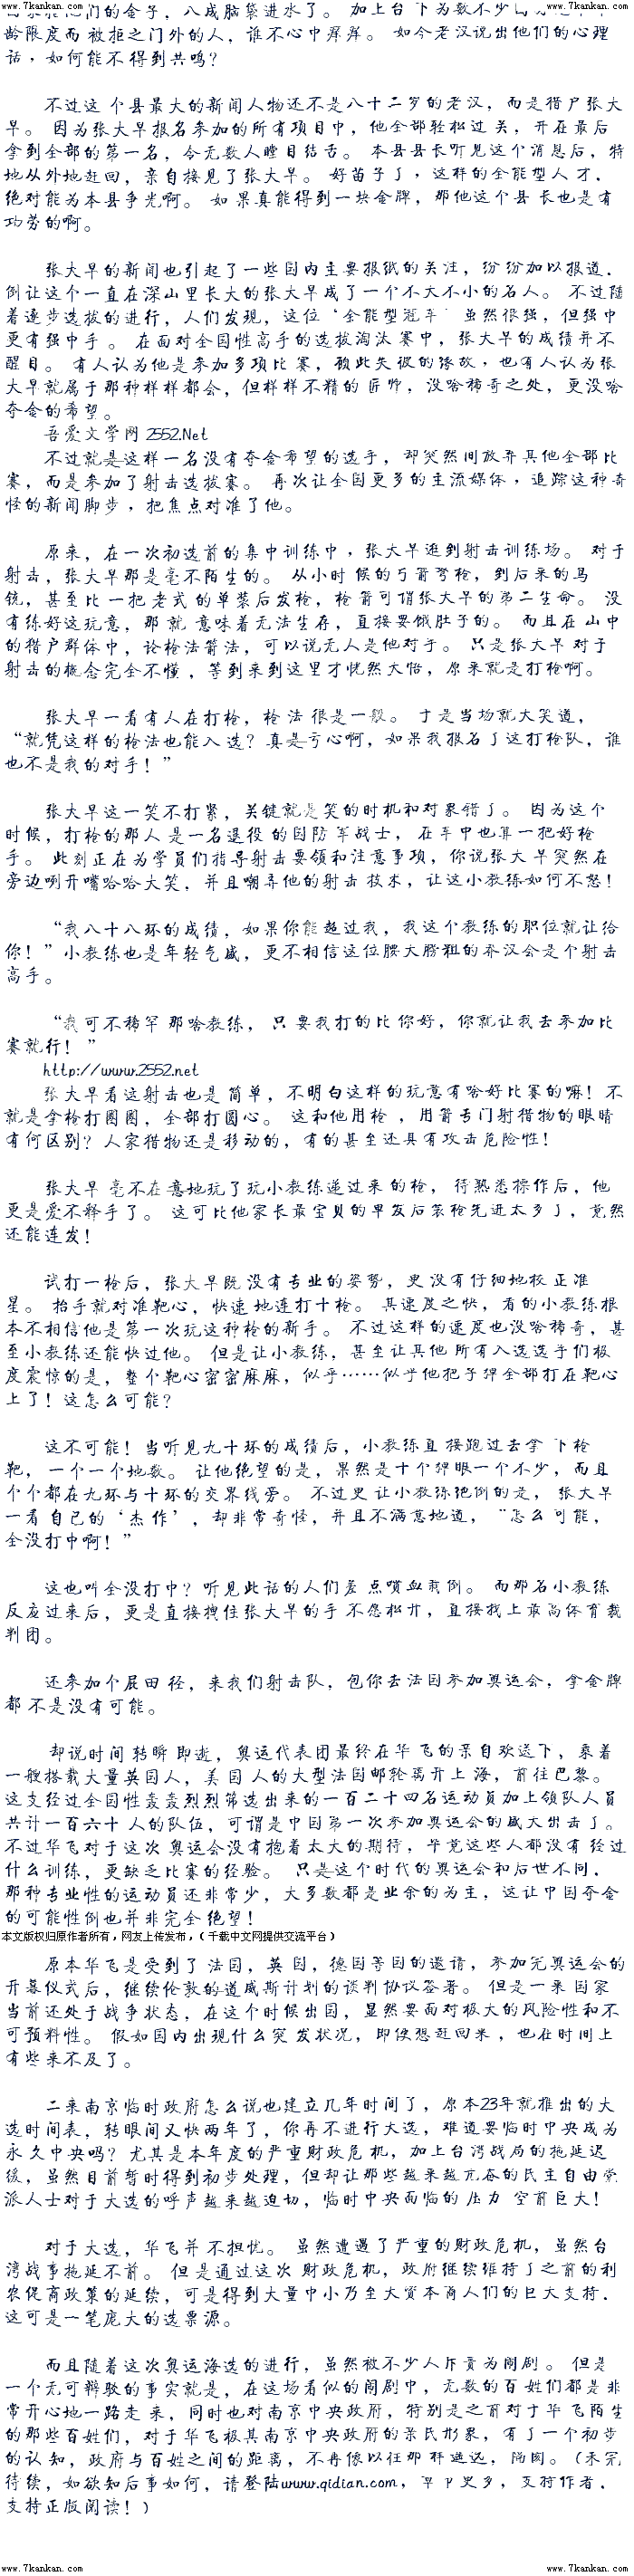 www.7kankan.com www.7kankan.com
们的金子，八成脑袋进水了。 加上台下为数不少
龄限度而被拒之门外的人，谁不心中痒痒。 如今老汉说出他们的心理
话，如何能不得到共鸣？
不过这个县最大的新闻人物还不是八十二岁的老汉，而是猎户张大
早。 因为张大早报名参加的所有项目中，他全部轻松过关，并在最后
拿到全部的第一名，令无数人瞠目结舌。 本县县长听见这个消息后，特
地从外地赶回，亲自接见了张大早。 好苗子了，这样的全能型人才，
绝对能为本县争光啊。 如果真能得到一块金牌，那他这个县长也是有
功劳的啊。
张大早的新闻也引起了一些国内主要报纸的关注，纷纷加以报道，
倒让这个一直在深山里长大的张大早成了一个不大不小的名人。 不过随
着逐步选拔的进行，人们发现，这位‘全能型冠军’虽然很强，但强中
更有强中手。 在面对全国性高手的选拔淘汰赛中，张大早的成绩并不
醒目。 有人认为他是参加多项比赛，顾此失彼的缘故，也有人认为张
大早就属于那种样样都会，但样样不精的匠师，没啥稀奇之处，更没啥
夺金的希望。
吾爱文学网 2552.Net
不过就是这样一名没有夺金希望的选手，却突然间放弃其他全部比
赛，而是参加了射击选拔赛。 再次让全国更多的主流媒体，追踪这种奇
怪的新闻脚步，把焦点对准了他。
原来，在一次初选前的集中训练中，张大早逛到射击训练场。 对于
射击，张大早那是毫不陌生的。 从小时候的弓箭弩枪，到后来的鸟
铳，甚至比一把老式的单装后发枪，枪箭可谓张大早的第二生命。 没
有练好这玩意，那就意味着无法生存，直接要饿肚子的。 而且在山中
的猎户群体中，论枪法箭法，可以说无人是他对手。 只是张大早对于
射击的概念完全不懂，等到来到这里才恍然大悟，原来就是打枪啊。
张大早一看有人在打枪，枪法很是一般。 于是当场就大笑道，
“就凭这样的枪法也能入选？真是亏心啊，如果我报名了这打枪队，谁
也不是我的对手！”
张大早这一笑不打紧，关键就是笑的时机和对象错了。 因为这个
时候，打枪的那人是一名退役的国防军战士，在军中也算一把好枪
手。 此刻正在为学员们指导射击要领和注意事项，你说张大早突然在
旁边咧开嘴哈哈大笑，并且嘲弄他的射击技术，让这小教练如何不怒！
“我八十八环的成绩，如果你能超过我，我这个教练的职位就让给
你！”小教练也是年轻气盛，更不相信这位腰大膀粗的莽汉会是个射击
高手。
“我可不稀罕那啥教练，只要我打的比你好，你就让我去参加比
赛就行！”
http://www.2552.net
张大早看这射击也是简单，不明白这样的玩意有啥好比赛的嘛！不
就是拿枪打圈圈，全部打圆心。 这和他用枪，用箭专门射猎物的眼睛
有何区别？人家猎物还是移动的，有的甚至还具有攻击危险性！
张大早毫不在意地玩了玩小教练递过来的枪，待熟悉操作后，他
更是爱不释手了。 这可比他家长最宝贝的单发后装枪先进太多了，竟然
还能连发！
试打一枪后，张大早既没有专业的姿势，更没有仔细地校正准
星。 抬手就对准靶心，快速地连打十枪。 其速度之快，看的小教练根
本不相信他是第一次玩这种枪的新手。 不过这样的速度也没啥稀奇，甚
至小教练还能快过他。 但是让小教练，甚至让其他所有入选选手们极
度震惊的是，整个靶心密密麻麻，似乎……似乎他把子弹全部打在靶心
上了！这怎么可能？
这不可能！当听见九十环的成绩后，小教练直接跑过去拿下枪
靶，一个一个地数。 让他绝望的是，果然是十个弹眼一个不少，而且
个个都在九环与十环的交界线旁。 不过更让小教练绝倒的是，张大早
一看自己的‘杰作’，却非常奇怪，并且不满意地道，“怎么可能，
全没打中啊！”
这也叫全没打中？听见此话的人们差点喷血载倒。 而那名小教练
反应过来后，更是直接拽住张大早的手不愿松开，直接找上最高体育裁
判团。
还参加个屁田径，来我们射击队，包你去法国参加奥运会，拿金牌
都不是没有可能。
却说时间转瞬即逝，奥运代表团最终在华飞的亲自欢送下，乘着
一艘搭载大量英国人，美国人的大型法国邮轮离开上海，前往巴黎。
这支经过全国性轰轰烈烈筛选出来的一百二十四名运动员加上领队人员
共计一百六十人的队伍，可谓是中国第一次参加奥运会的盛大出击了。
不过华飞对于这次奥运会没有抱着太大的期待，毕竟这些人都没有经过
什么训练，更缺乏比赛的经验。 只是这个时代的奥运会和后世不同，
那种专业性的运动员还非常少，大多数都是业余的为主，这让中国夺金
的可能性倒也并非完全绝望！
本文版权归原作者所有，网友上传发布，（千载中文网提供交流平台）
原本华飞是受到了法国，英国，德国等国的邀请，参加完奥运会的
开幕仪式后，继续伦敦的道威斯计划的谈判协议签署。 但是一来国家
当前还处于战争状态，在这个时候出国，显然要面对极大的风险性和不
可预料性。 假如国内出现什么突发状况，即使想赶回来，也在时间上
有些来不及了。
二来南京临时政府怎么说也建立几年时间了，原本23年就推出的大
选时间表，转眼间又快两年了，你再不进行大选，难道要临时中央成为
永久中央吗？尤其是本年度的严重财政危机，加上台湾战局的拖延迟
缓，虽然目前暂时得到初步处理，但却让那些越来越亢奋的民主自由党
派人士对于大选的呼声越来越迫切，临时中央面临的压力空前巨大！
对于大选，华飞并不担忧。 虽然遭遇了严重的财政危机，虽然台
湾战事拖延不前。 但是通过这次财政危机，政府继续维持了之前的利
农促商政策的延续，可是得到大量中小乃至大资本商人们的巨大支持，
这可是一笔庞大的选票源。
而且随着这次奥运海选的进行，虽然被不少人斥责为闹剧。 但是
一个无可辩驳的事实就是，在这场看似的闹剧中，无数的百姓们都是非
常开心地一路走来，同时也对南京中央政府，特别是之前对于华飞陌生
的那些百姓们，对于华飞极其南京中央政府的亲民形象，有了一个初步
的认知，政府与百姓之间的距离，不再像以往那样遥远，隔阂。（未完
待续，如欲知后事如何，请登陆www.qidian.com，章节更多，支持作者，
支持正版阅读！)
www.7kankan.com www.7kankan.com